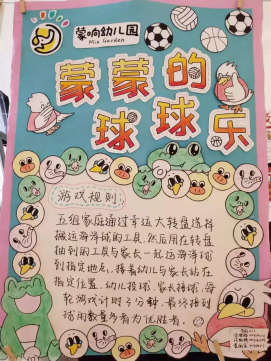 蒙响幼儿园
Mix Garden
蒙蒙的
球球乐
游戏规则:
五组家庭通过幸运大转盘选择
搬运海洋球的工具,然后用在转盘
抽到的工具与家长一起运海洋球
到指定地点,接着幼儿与家长站在
指定位置,幼儿投球,家长接球,每
轮游戏计时3分钟,最终接到
球的数量多者为优胜者.